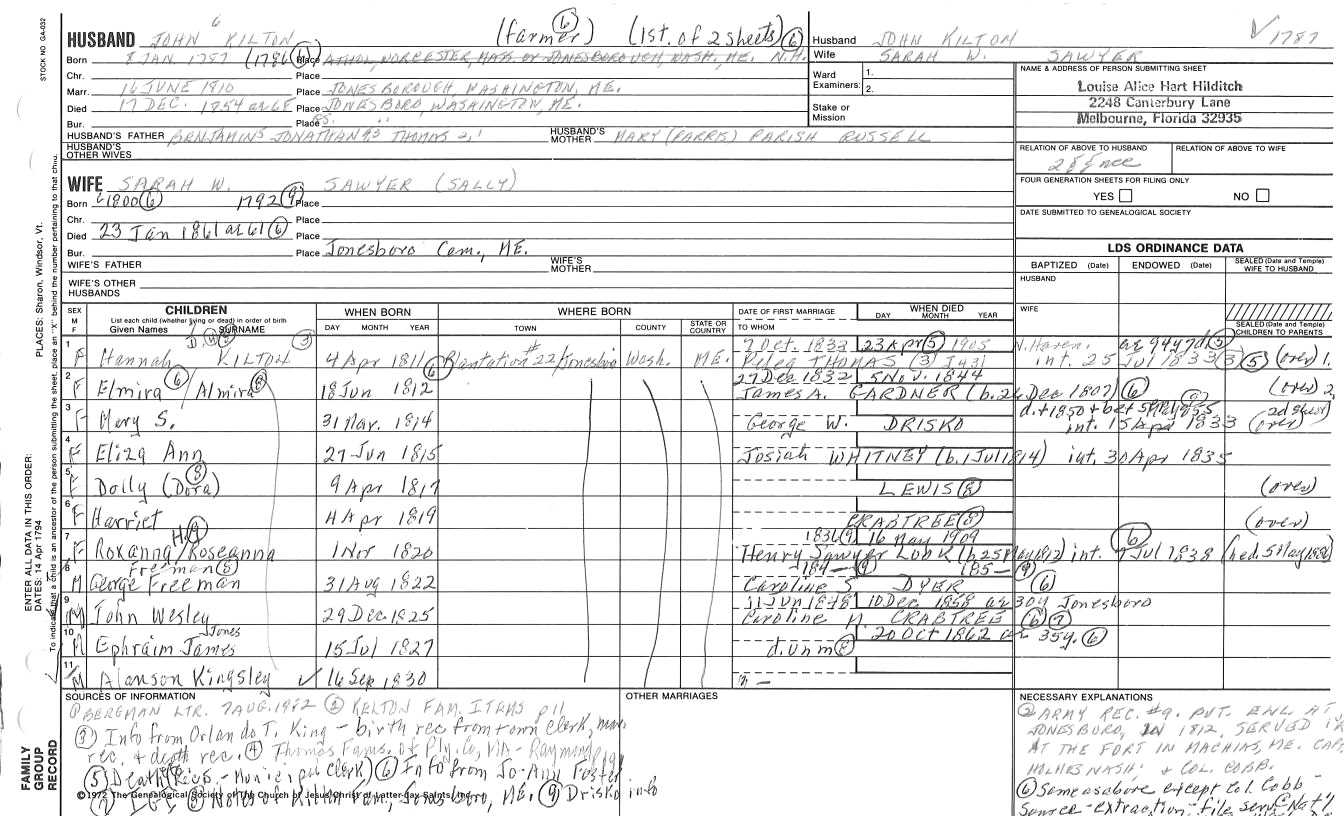 STOCK NO. GA-032
PLACES: Sharon, Windsor, Vt.
ENTER ALL DATA IN THIS ORDER:
DATES: 14 Apr 1794
To indicate that a child is an ancestor of the person submitting the sheet, place an "X" behind the number pertaining to that child.
FAMILY GROUP RECORD
6 (farmer) 6 (1st. of 2 sheets) 6
HUSBAND JOHN KILTON
Born 8 JAN 1787 (1786 6) Place ATHOL, WORCESTER, MASS or JONESBOROUGH, WASH, ME. N.H.
Chr. Place
Marr. 16 JUNE 1810 Place JONESBOROUGH, WASHINGTON, ME.
Died 17 DEC. 1854 at 68 Place JONESBORO, WASHINGTON, ME.
Bur. Place
HUSBAND'S FATHER BENJAMIN JONATHAN 3 THOMAS 2, 1 HUSBAND'S MOTHER MARY (FARRIS) PARISH RUSSELL
HUSBAND'S OTHER WIVES
WIFE SARAH W. SAWYER (SALLY)
Born c1800 6 1792 9 Place
Chr. Place
Died 23 Jan 1861 at 61 6 Place
Bur. Place Jonesboro Cem., ME.
WIFE'S FATHER WIFE'S MOTHER
WIFE'S OTHER HUSBANDS
Husband JOHN KILTON ✓ 1787
Wife SARAH W. SAWYER
Ward Examiners: 1.
2.
Stake or Mission
NAME & ADDRESS OF PERSON SUBMITTING SHEET
Louise Alice Hart Hilditch
2248 Canterbury Lane
Melbourne, Florida 32935
RELATION OF ABOVE TO HUSBAND RELATION OF ABOVE TO WIFE
FOUR GENERATION SHEETS FOR FILING ONLY
YES NO
DATE SUBMITTED TO GENEALOGICAL SOCIETY
LDS ORDINANCE DATA
BAPTIZED (Date) ENDOWED (Date) SEALED (Date and Temple) WIFE TO HUSBAND
HUSBAND
WIFE
SEALED (Date and Temple) CHILDREN TO PARENTS
SEX M F
CHILDREN
List each child (whether living or dead) in order of birth
Given Names SURNAME
WHEN BORN
DAY MONTH YEAR
WHERE BORN
TOWN COUNTY STATE OR COUNTRY
DATE OF FIRST MARRIAGE
TO WHOM
WHEN DIED
DAY MONTH YEAR
7 Oct. 1833 23 Apr 5 1905 N. Haven.
1 F Hannah KILTON 3 4 Apr 1811 6 Plantation #22/Jonesboro Wash. ME. Peleg THOMAS 3 int. 25 Jul 1833 3 5 (over) 1.
27 Dec 1832 5 Nov. 1844
2 F Elmira 6 / Almira 8 18 Jun 1812 James A. GARDNER (b. 24 Dec 1807) 6 (over) 2.
3 F Mary S. 31 Mar. 1814 George W. DRISKO int. 15 Apr 1833 (2d sheet) (over)
4 F Eliza Ann 27 Jun 1815 Josiah WHITNEY (b. 1 Jul 1814) int. 30 Apr 1835
5 F Dolly (Dora) 8 9 Apr 1817 LEWIS 8 (over)
6 F Harriet 4 Apr 1819 CRABTREE 8 (over)
H. 9 1836 9 16 May 1909 6
7 F Roxanna/Roseanna 1 Nov 1820 Henry Sawyer LOOK (b 25 May 1812) int. 7 Jul 1838
Freeman 8 184— 9 185— 9
8 M George Freeman 31 Aug 1822 Caroline S. DYER 6
11 Jun 1848 10 Dec 1868 at 30y Jonesboro
9 M John Wesley 29 Dec. 1825 Caroline M. CRABTREE 6 7
Jones 20 Oct 1862 at 35y. 6
10 M Ephraim James 15 Jul 1827 d. unm 8
11 M Alanson Kingsley ✓ 16 Sep 1830
SOURCES OF INFORMATION
1 BERGMAN LTR. 7 AUG. 1982 2 KELTON FAM. ITEMS p11
3 Info from Orlando T. King - birth rec. from town clerk, mar.
rec. & death rec. 4 Thomas Fams. of Ply. Co., VIA - Raymond
5 Death Recs. - Municipal Clerk 6 Info from Jo-Ann Foster
7 IGI 8 Notes of Kilton Fam, Jonesboro, ME. 9 Drisko info
©1972 The Genealogical Society of The Church of Jesus Christ of Latter-day Saints, Inc.
OTHER MARRIAGES
NECESSARY EXPLANATIONS
2 ARMY REC. #9. PVT. ENL AT
JONESBORO, IN 1812, SERVED IN
AT THE FORT IN MACHIAS, ME. CAPT
HOLMES NASH. & COL. COBB.
6 Same as above except Col. Cobb -
Source - extraction - file serv. Nat'l